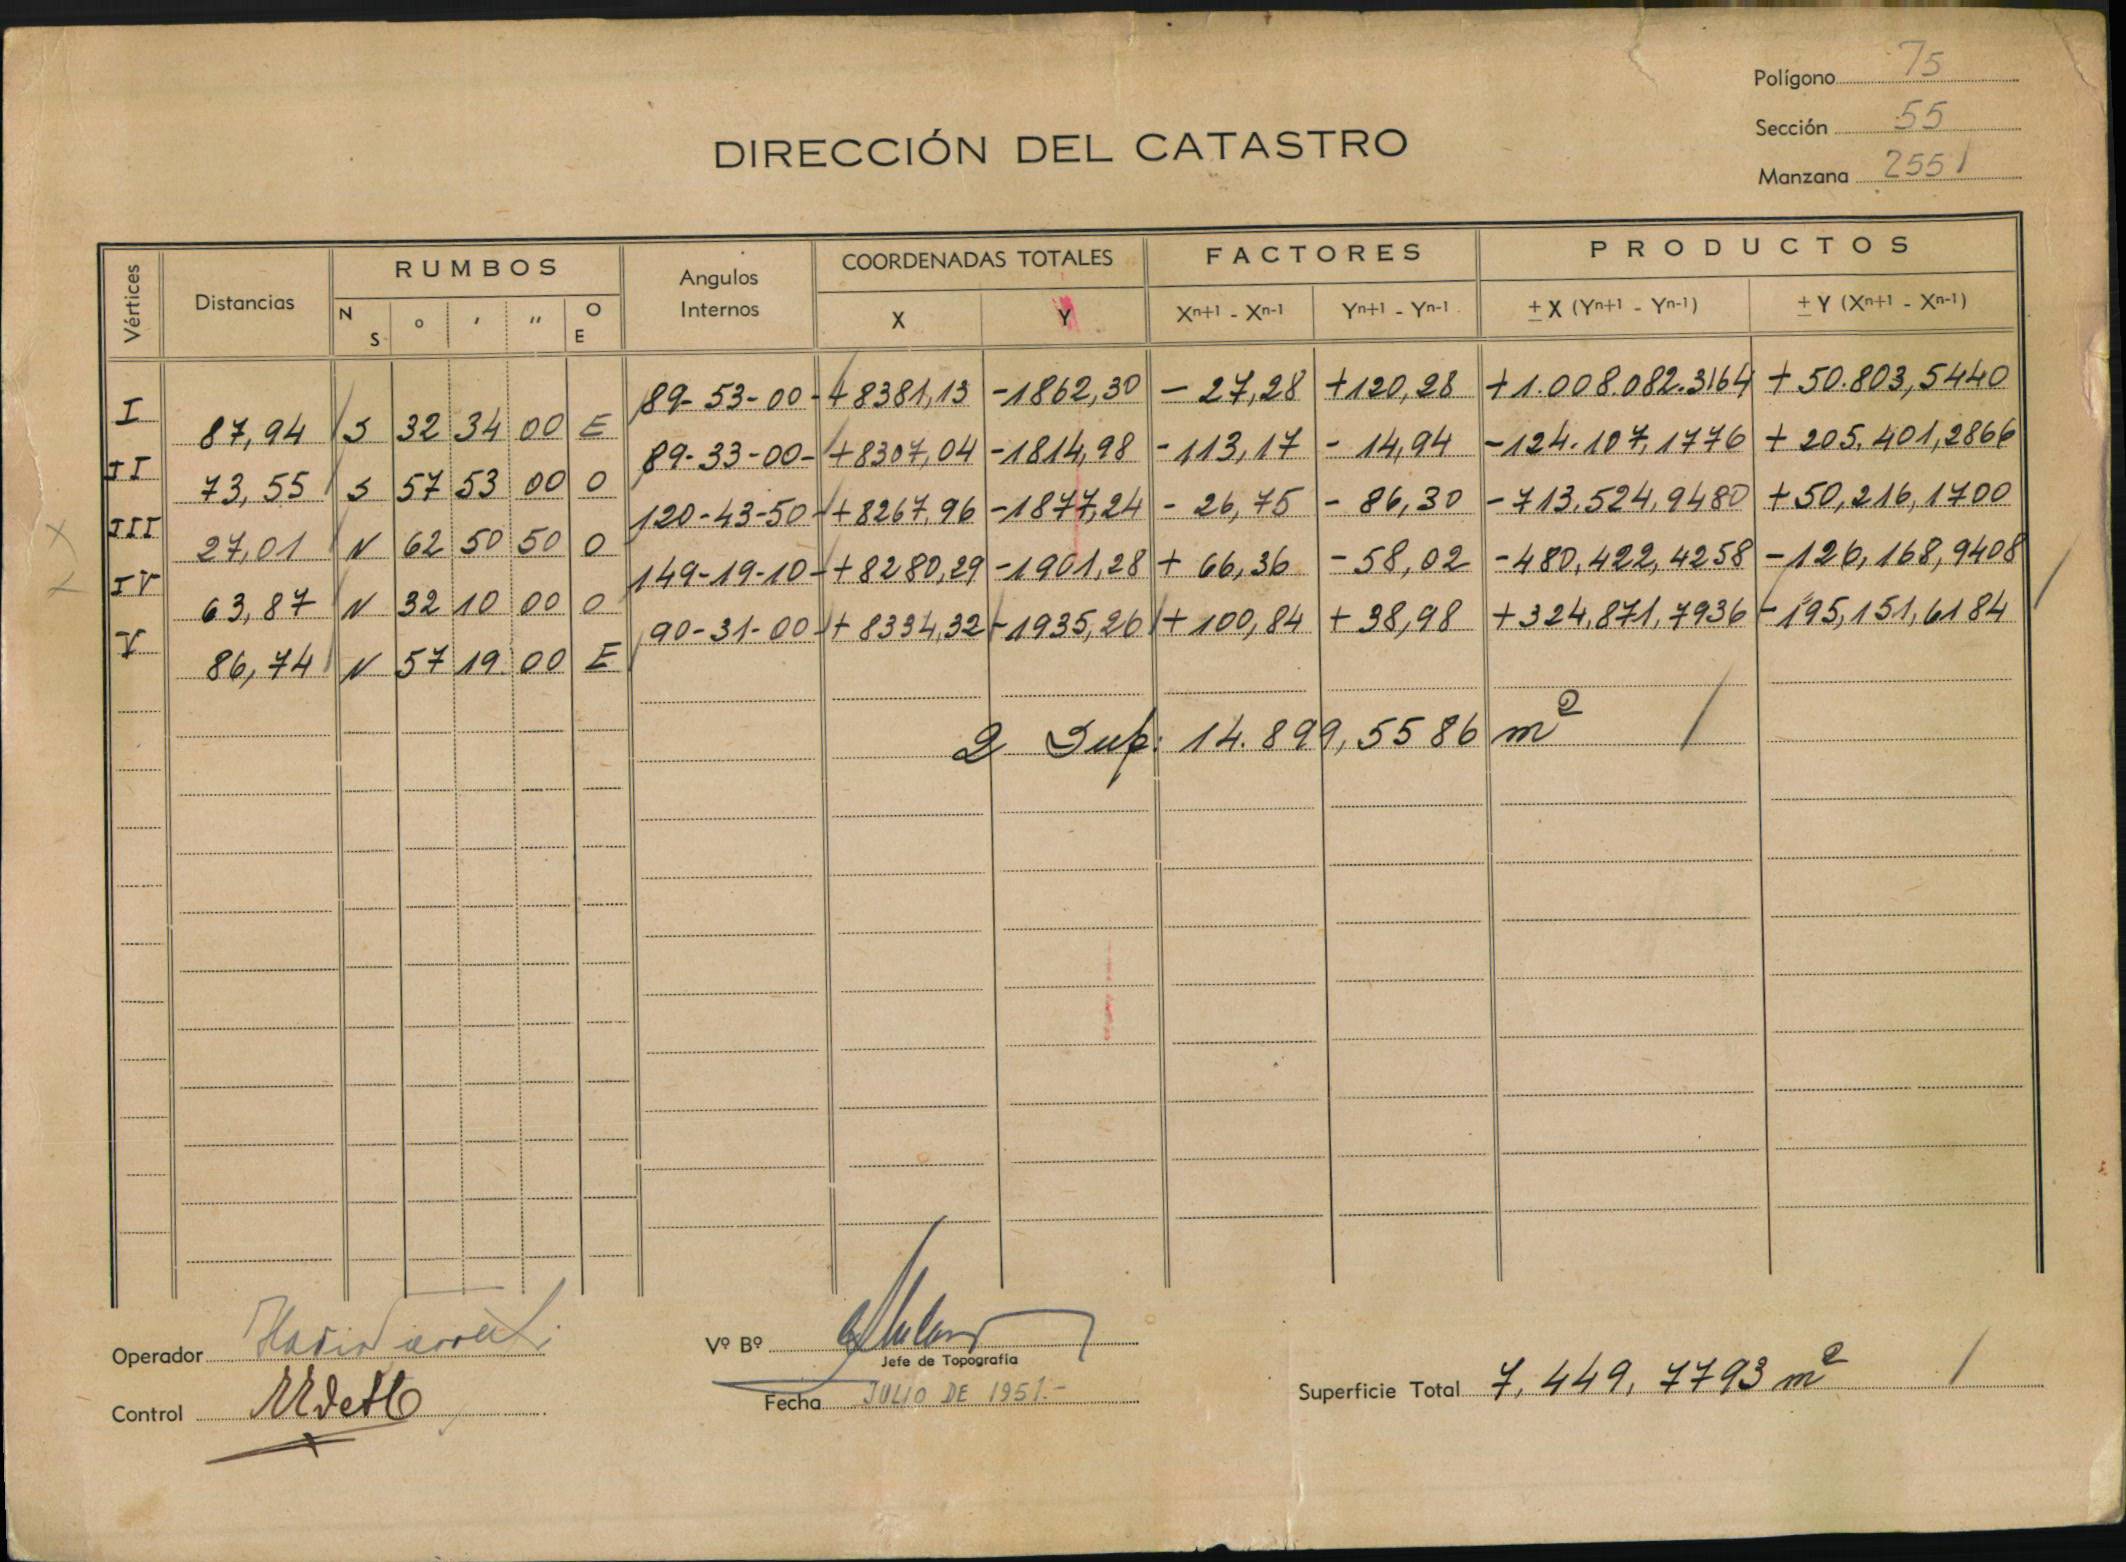 Polígono 75
Sección 55
Manzana 2551
DIRECCIÓN DEL CATASTRO
Vértices Distancias RUMBOS Angulos Internos COORDENADAS TOTALES FACTORES PRODUCTOS
N S ° ' " O E X Y Xn+1 - Xn-1 Yn+1 - Yn-1 ± X (Yn+1 - Yn-1) ± Y (Xn+1 - Xn-1)
I 89-53-00 +8381,13 -1862,30 - 27,28 +120,28 +1.008.082.3164 + 50.803,5440
87,94 S 32 34 00 E
II 89-33-00- +8307,04 -1814,98 -113,17 - 14,94 -124.107,1776 + 205.401,2866
73,55 S 57 53 00 O
III 120-43-50 +8267,96 -1877,24 - 26,75 - 86,30 -713.524,9480 +50,216,1700
27,01 N 62 50 50 O
IV 149-19-10 +8280,29 -1901,28 + 66,36 -58,02 -480,422,4258 -126,168,9408
63,87 N 32 10 00 O
V 90-31-00 +8334,32 -1935,26 +100,84 +38,98 +324,871,7936 -195,151,6184
86,74 N 57 19 00 E
2 Sup: 14.899,5586 m²
Operador
Control
Vº Bº
Jefe de Topografía
Fecha JULIO DE 1951.-
Superficie Total 7,449,7793 m²